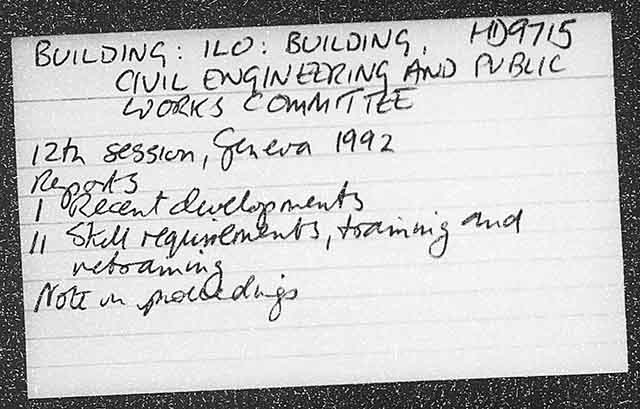 BUILDING: ILO: BUILDING, HD9715
CIVIL ENGINEERING AND PUBLIC
WORKS COMMITTEE
12th session, Geneva 1992
Reports
I Recent developments
II Skill requirements, training and
retraining
Note on proceedings